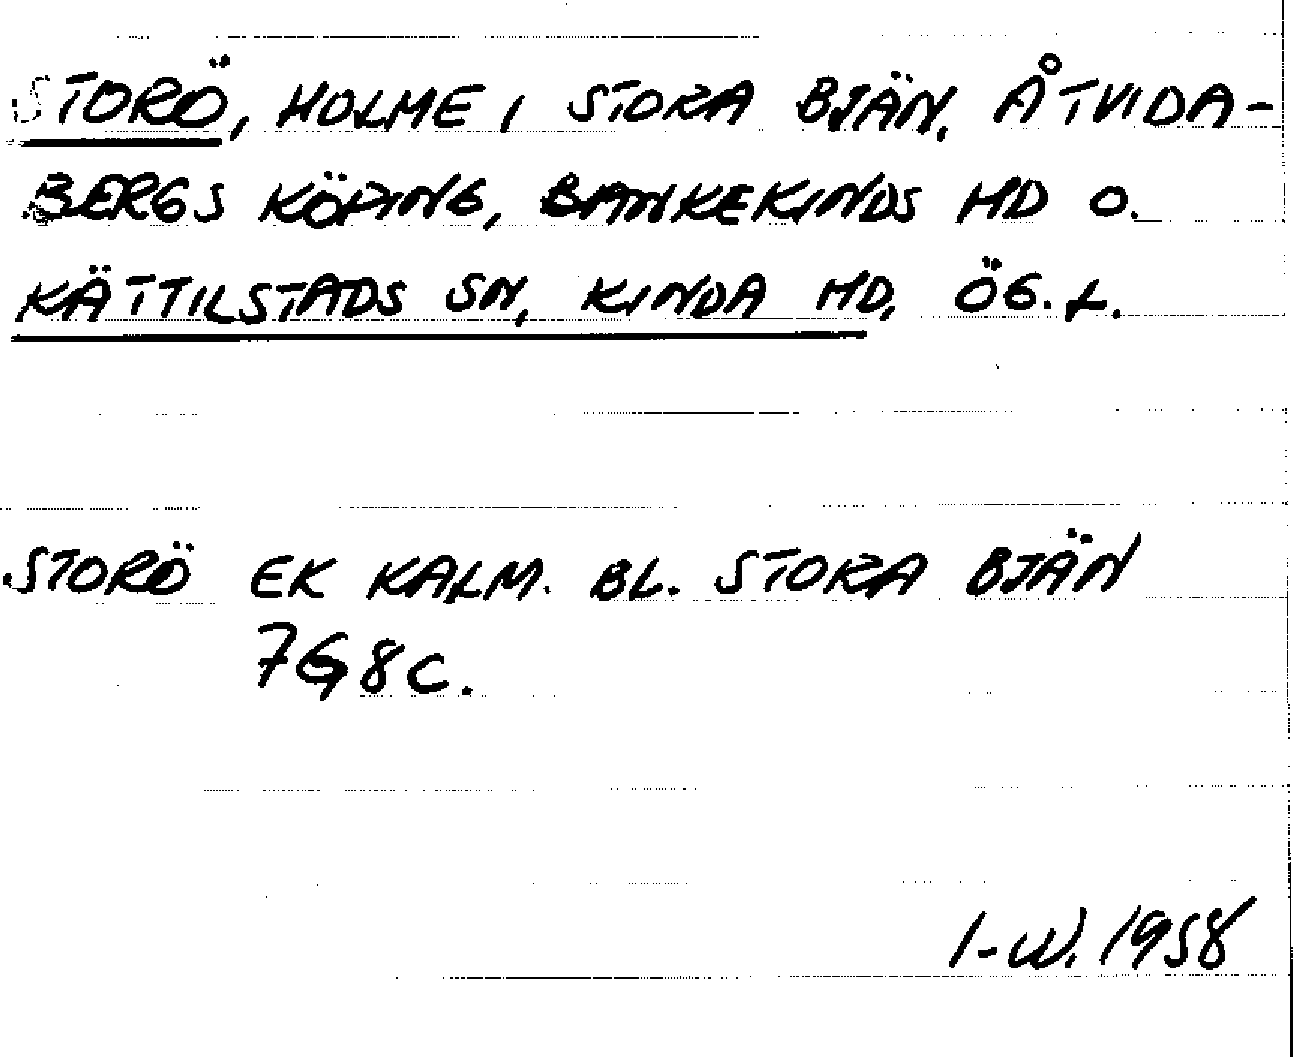 STORÖ, HOLME I STORA BJÄN, ÅTVIDA-
BERGS KÖPING, BANKEKINDS HD O.
KÄTTILSTADS SN, KINDA HD, ÖG. L.
STORÖ EK KALM. BL. STORA BJÄN
7G8C.
I-W. 1958